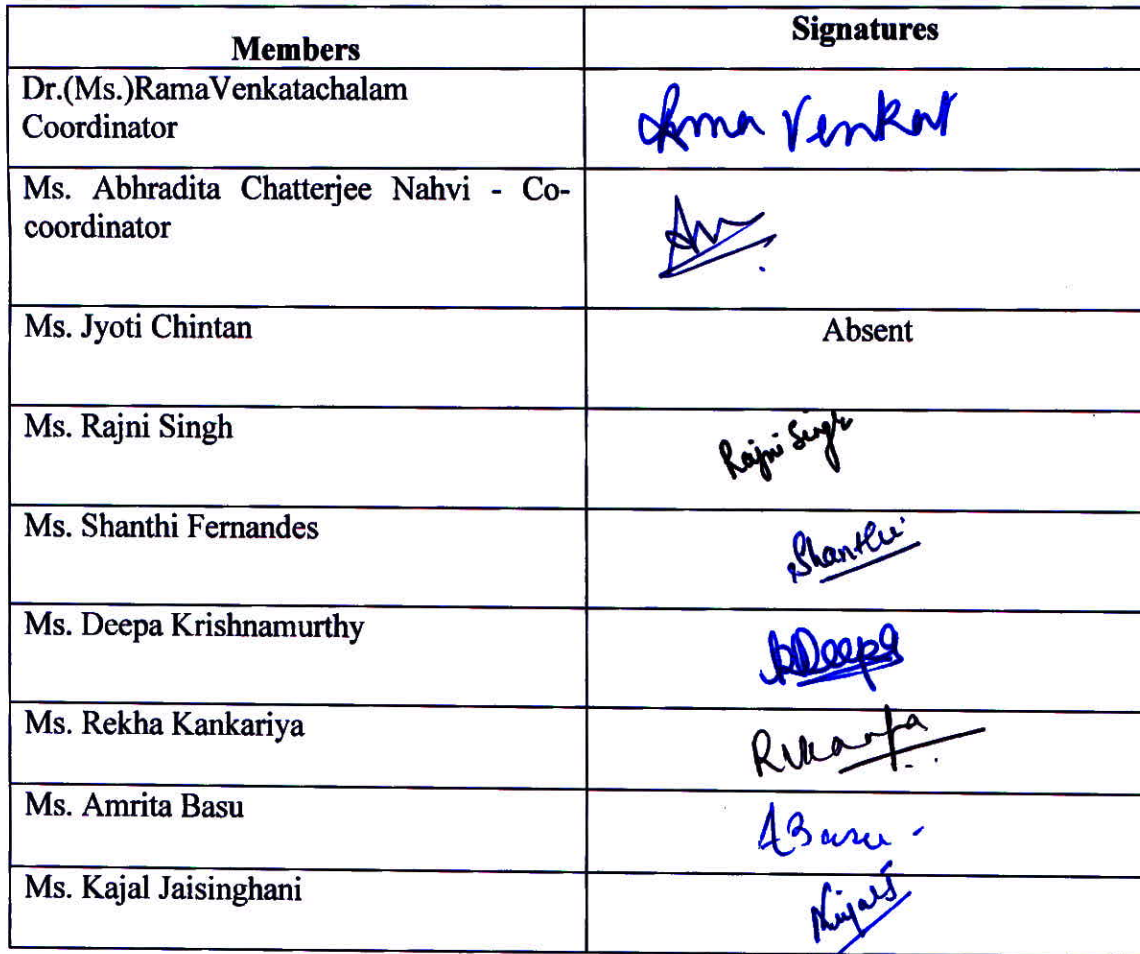 Members
Signatures
Dr.(Ms.)RamaVenkatachalam
Coordinator
Rama Venkat
Ms. Abhradita Chatterjee Nahvi - Co-
coordinator
Ms. Jyoti Chintan
Absent
Ms. Rajni Singh
Rajni Singh
Ms. Shanthi Fernandes
Shanthi
Ms. Deepa Krishnamurthy
Deepa
Ms. Rekha Kankariya
Ms. Amrita Basu
ABasu
Ms. Kajal Jaisinghani